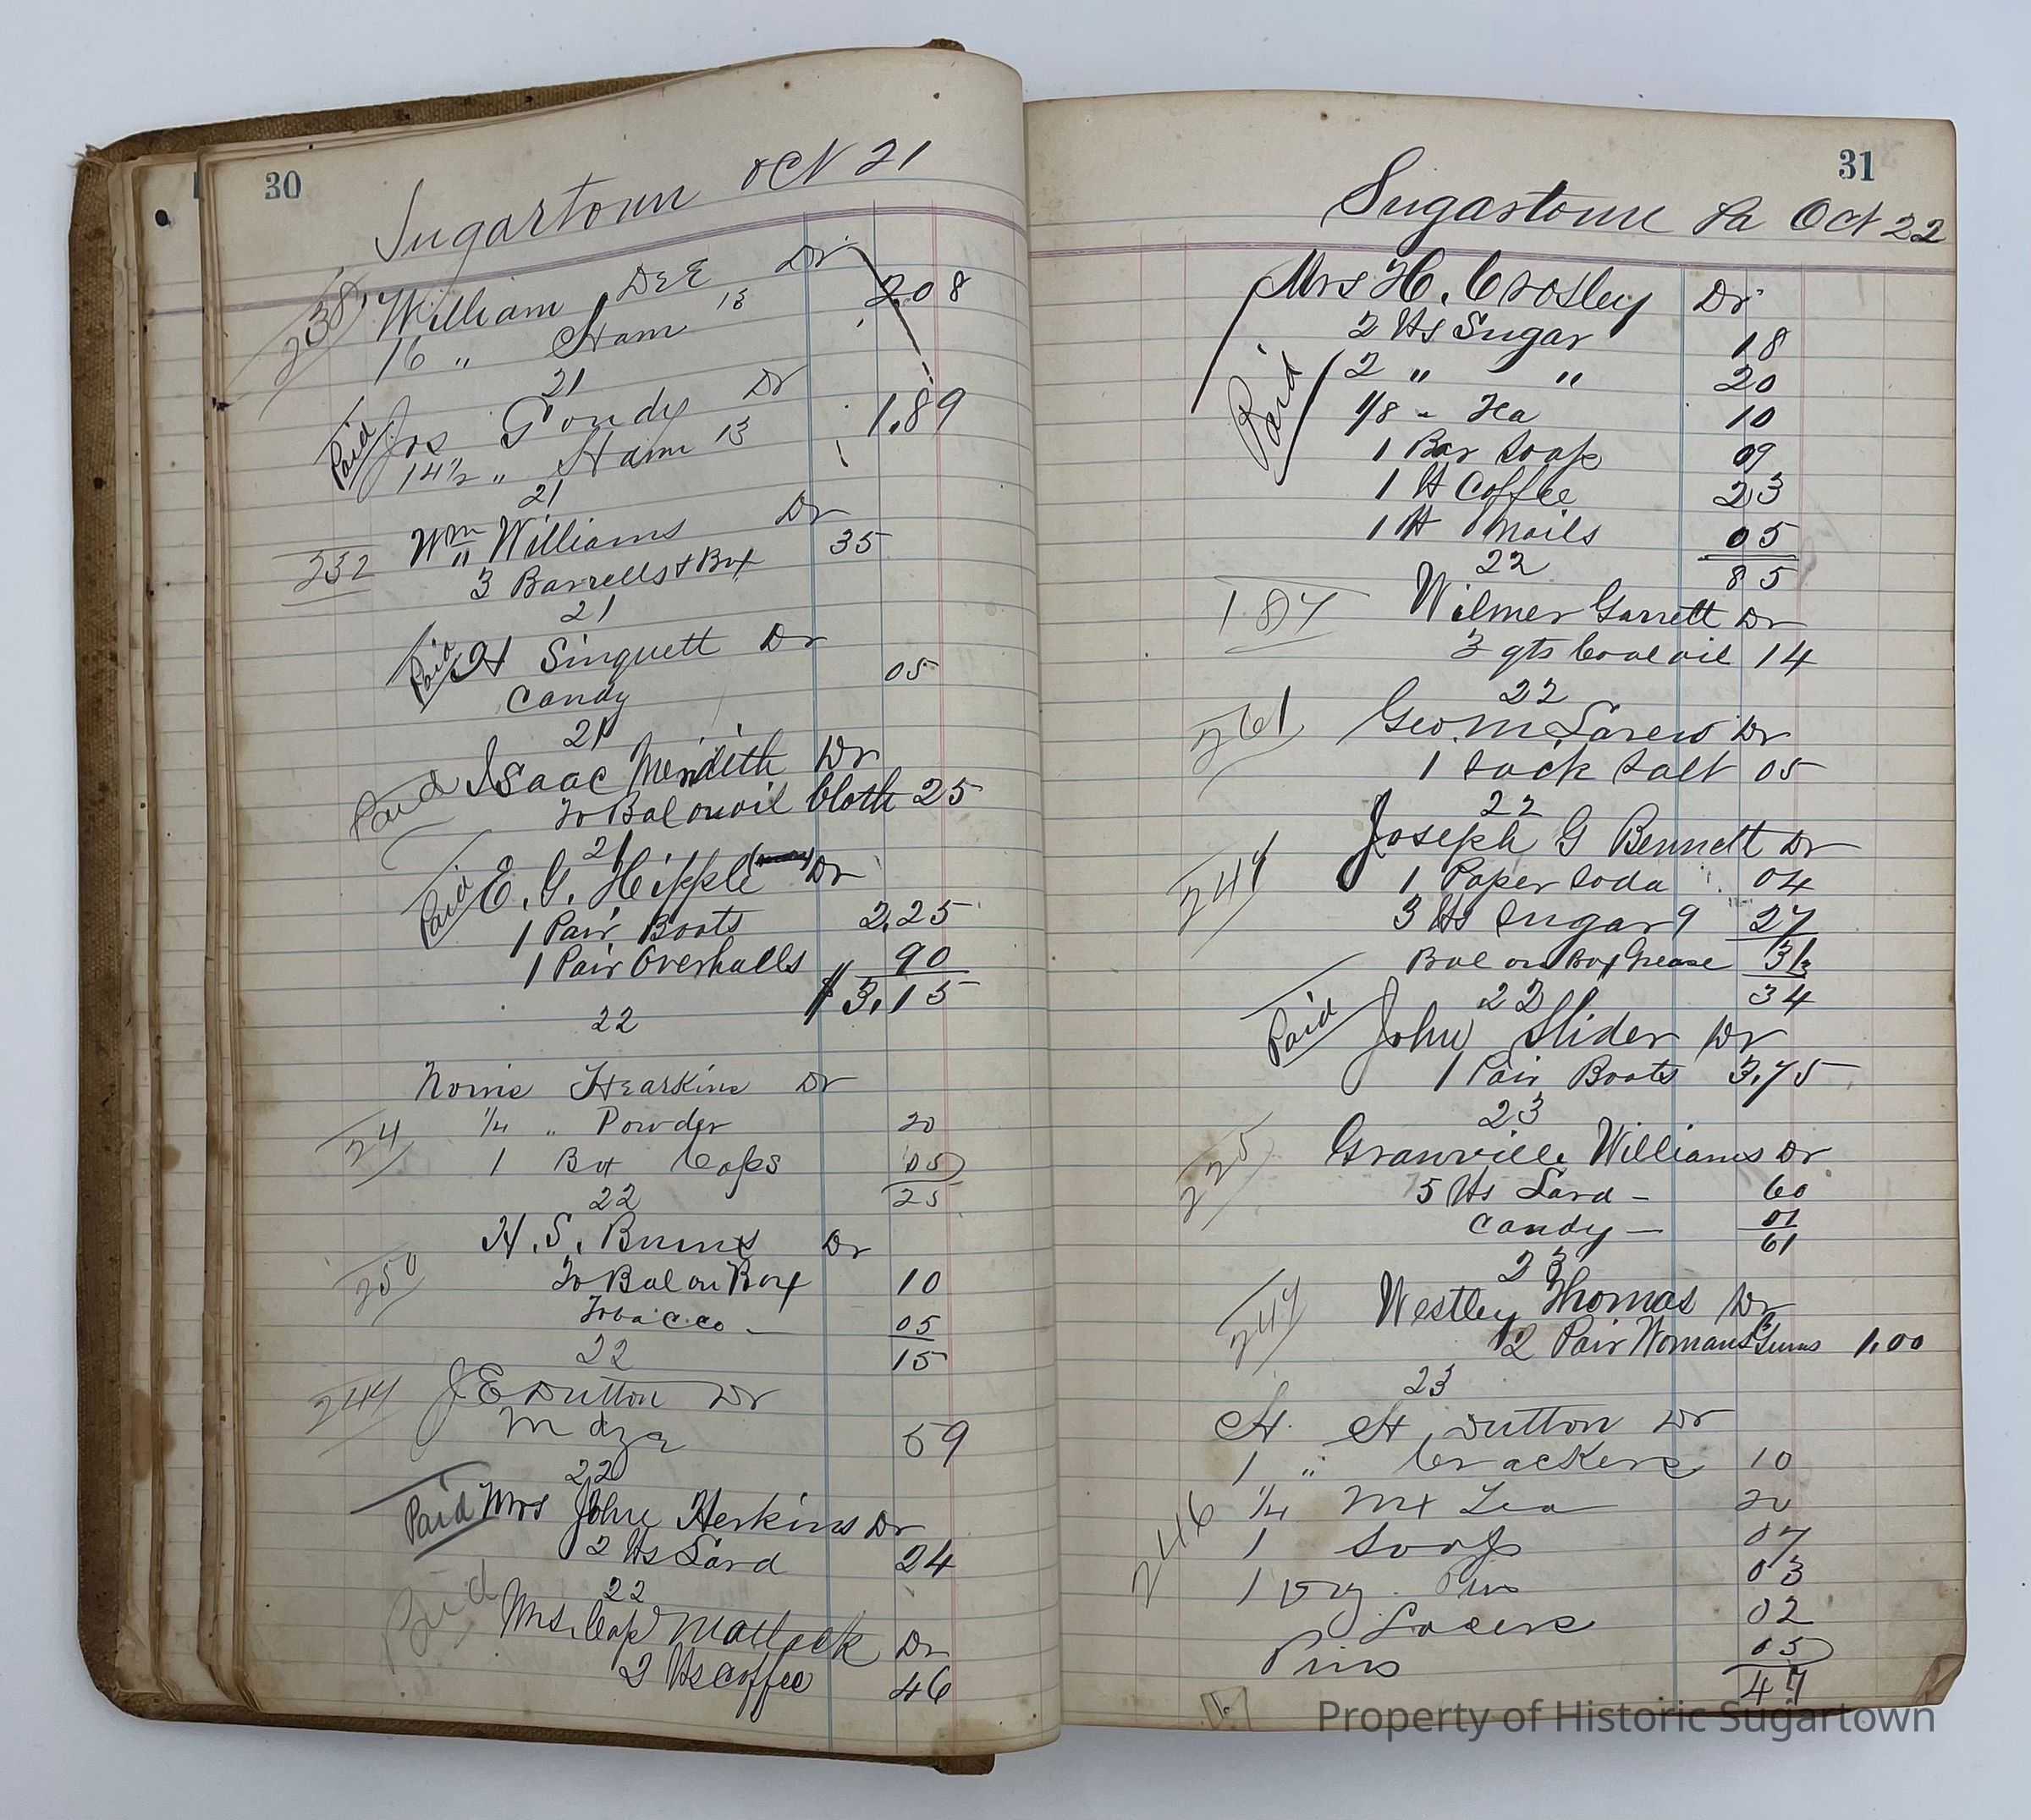 30
Sugartown Oct 21
238 William DEE Dr
16 " Ham 13 2.08
21
Paid Jos Gondy Dr
14½ " Ham 13 1.89
21
232 Wm Williams Dr
3 Barrells + Box 35
21
Paid H Singuett Dr
Candy 05
21
Paid Isaac Meridith Dr
To Bal on oil Cloth 25
21
Paid E. G. Hipple Dr
1 Pair Boots 2.25
1 Pair Overhalls 90
$ 3.15
22
Norris Hearkins Dr
24 ¼ " Powder 20
1 Box Caps 05
22 25
H. S. Burns Dr
250 To Bal on Box 10
Tobacco 05
22 15
244 J E Dutton Dr
Mdze 59
22
Paid Mrs John Herkins Dr
2 lts Lard 24
22
Paid Mrs. Cap Matlack Dr
2 lts Coffee 46
31
Sugartown Pa Oct 22
Mrs H. Crosley Dr
2 lts Sugar 18
2 " " 20
Paid 1/8 " Tea 10
1 Bar Soap 09
1 lt Coffee 23
1 lt Nails 05
22 85
187 Wilmer Garrett Dr
3 qts Coal oil 14
22
261 Geo. M. Larew Dr
1 Sack Salt 05
22
Joseph G Bennett Dr
1 Paper Soda 04
3 lts Sugar 9 27
Bal on Box Grease 31
22 34
Paid John Slider Dr
1 Pair Boots 3.75
23
225 Granville Williams Dr
5 lts Lard 60
Candy 01
61
23
Westley Thomas Dr
2 Pair Womans Gums 1.00
23
H. H. Dutton Dr
1 " Crackers 10
246 ¼ Mx Tea 20
1 Soap 07
1 Pins 03
Laces 02
Pins 05
47
Property of Historic Sugartown